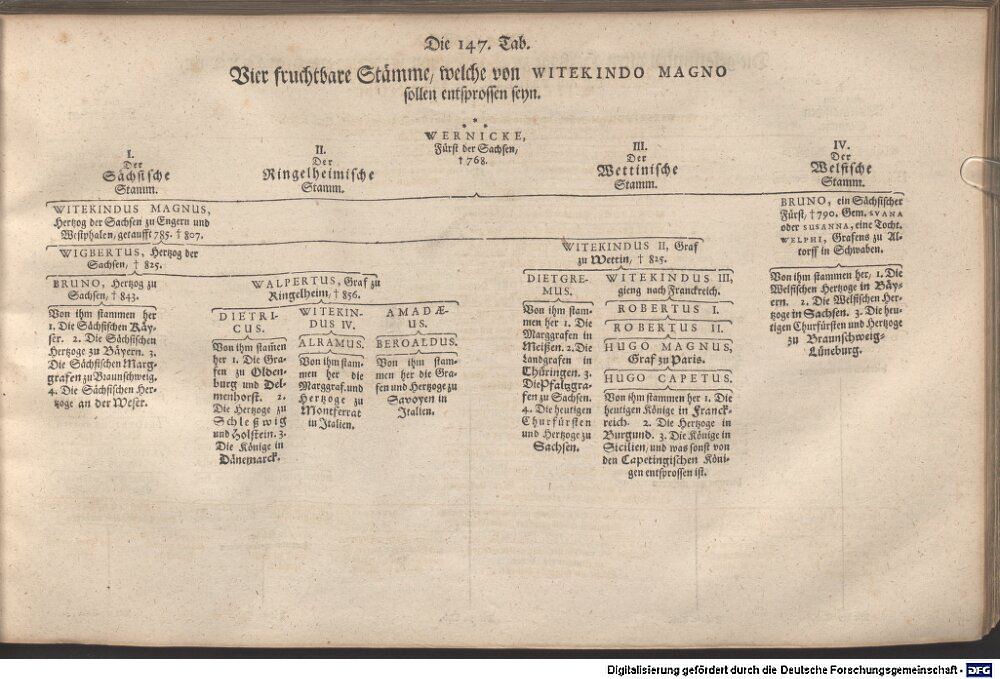 Die 147. Tab.
Vier fruchtbare Stämme, welche von WITEKINDO MAGNO
sollen entsprossen seyn.
* * *
WERNICKE,
Fürst der Sachsen,
† 768.
I.
Der
Sächsische
Stamm.
II.
Der
Ringelheimische
Stamm.
III.
Der
Wettinische
Stamm.
IV.
Der
Welfische
Stamm.
WITEKINDUS MAGNUS,
Hertzog der Sachsen zu Engern und
Westphalen, getaufft 785. † 807.
BRUNO, ein Sächsischer
Fürst, † 790. Gem. SVANA
oder SUSANNA, eine Tocht.
WELPHI, Grafens zu Al-
torff in Schwaben.
WIGBERTUS, Hertzog der
Sachsen, † 825.
WITEKINDUS II, Graf
zu Wettin, † 825.
Von ihm stammen her, 1. Die
Welfischen Hertzoge in Bäy-
ern. 2. Die Welfischen Her-
tzoge in Sachsen. 3. Die heu-
tigen Churfürsten und Hertzoge
zu Braunschweig-
Lüneburg.
BRUNO, Hertzog zu
Sachsen, † 843.
Von ihm stammen her
1. Die Sächsischen Käy-
ser. 2. Die Sächsischen
Hertzoge zu Bäyern. 3.
Die Sächsischen Marg-
grafen zu Braunschweig.
4. Die Sächsischen Her-
tzoge an der Weser.
WALPERTUS, Graf zu
Ringelheim, † 856.
DIETRI-
CUS.
Von ihm stam̃en
her 1. Die Gra-
fen zu Olden-
burg und Del-
menhorst. 2.
Die Hertzoge zu
Schleßwig
und Holstein. 3.
Die Könige in
Dänemarck.
WITEKIN-
DUS IV.
ALRAMUS.
Von ihm stam-
men her die
Marggraf. und
Hertzoge zu
Montferrat
in Italien.
AMADÆ-
US.
BEROALDUS.
Von ihm stam-
men her die Gra-
fen und Hertzoge zu
Savoyen in
Italien.
DIETGRE-
MUS.
Von ihm stam-
men her 1. Die
Marggrafen in
Meißen. 2. Die
Landgrafen in
Thüringen. 3.
Die Pfaltzgra-
fen zu Sachsen.
4. Die heutigen
Churfürsten
und Hertzoge zu
Sachsen.
WITEKINDUS III,
gieng nach Franckreich.
ROBERTUS I.
ROBERTUS II.
HUGO MAGNUS,
Graf zu Paris.
HUGO CAPETUS.
Von ihm stammen her 1. Die
heutigen Könige in Franck-
reich. 2. Die Hertzoge in
Burgund. 3. Die Könige in
Sicilien, und was sonst von
den Capetingischen Köni-
gen entsprossen ist.
Digitalisierung gefördert durch die Deutsche Forschungsgemeinschaft - DFG